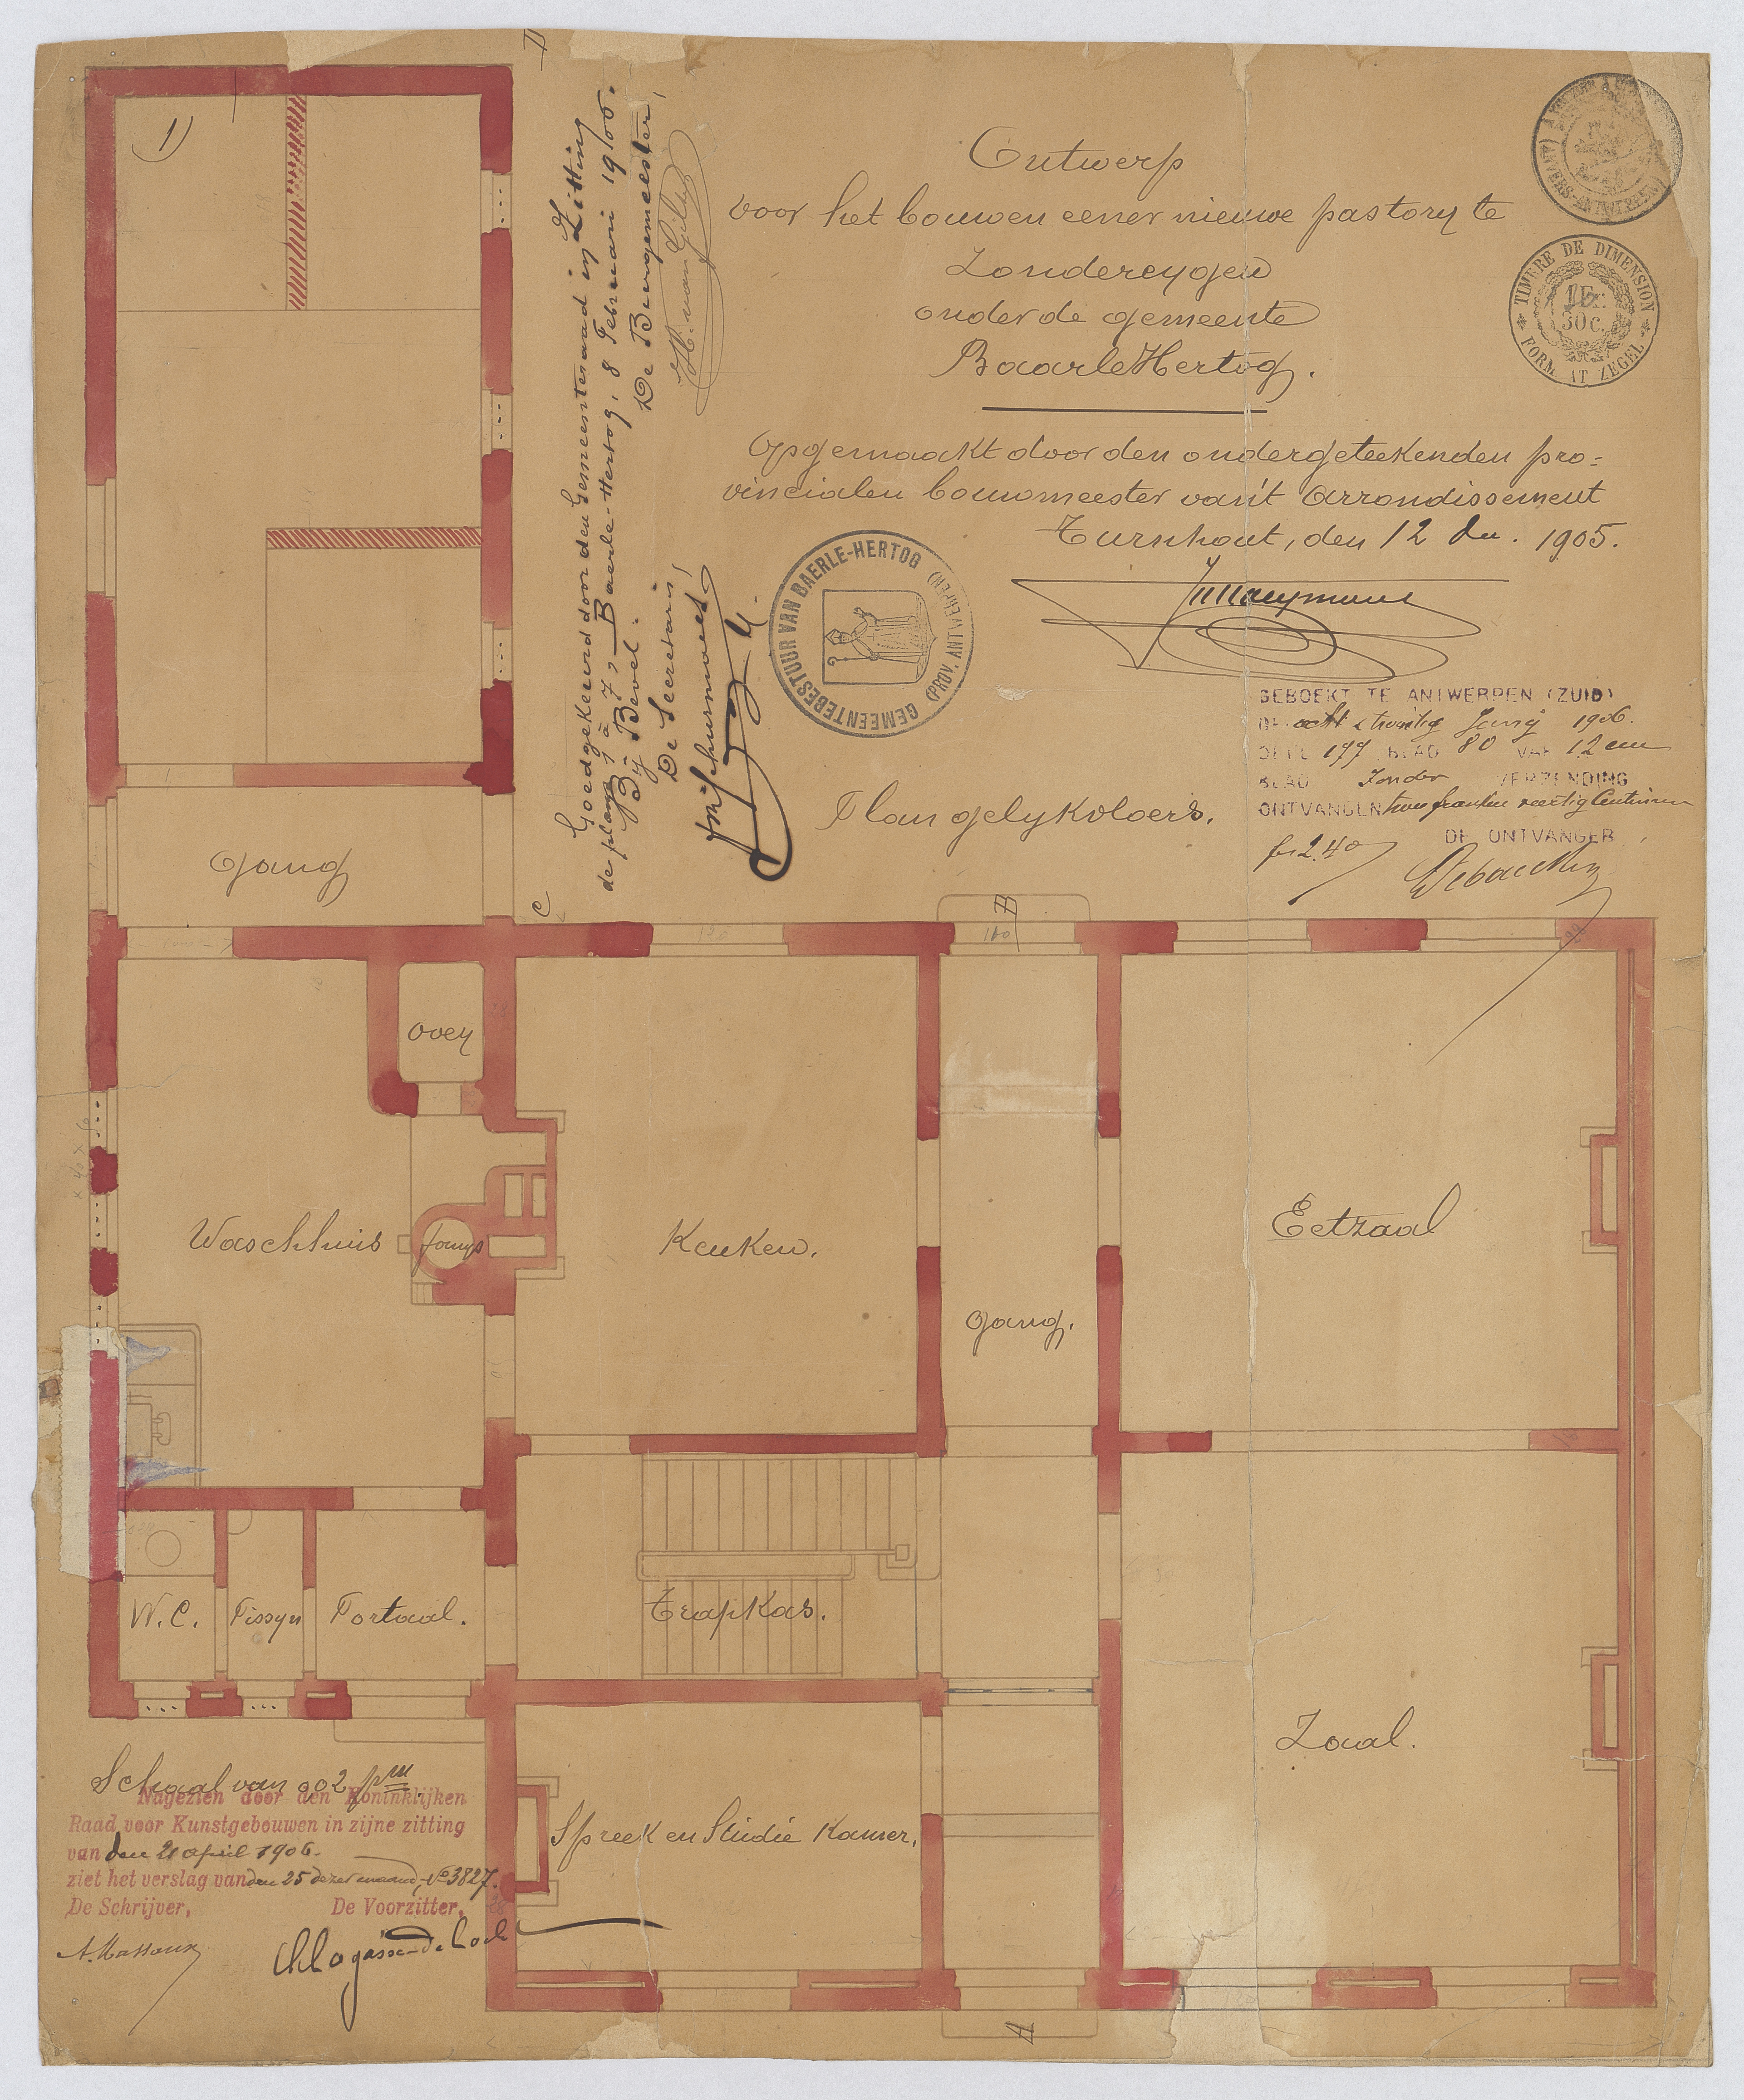 1)
Ontwerp
voor het bouwen eener nieuwe pastory te
Zondereygen
onder de gemeente
BaarleHertog.
Opgemaakt door den ondergeteekenden pro=
vincialen bouwmeester van't Arrondissement
Turnhout, den 12 Dec. 1905.
TIMBRE DE DIMENSION
1 Fr.
30 C.
FORMAAT ZEGEL
Goedgekeurd door den Gemeenteraad in Zitting
de plans 1 à 7, Baerle-Hertog, 8 Februari 19/06.
By Bevel:
De Burgemeester,
De Secretaris,
GEMEENTEBESTUUR VAN BAERLE-HERTOG
(PROV. ANTWERPEN)
GEBOEKT TE ANTWERPEN (ZUID)
DEN acht en twintig Juny 1906.
DEEL 177 BLAD 80 VAK 12 een
BLAD Zonder VERZENDING
ONTVANGEN twee franken veertig Centiemen
fr 2.40
DE ONTVANGER
Plan gelykvloers.
C
D
B
140
Gang
Oven
Waschhuis
fornys
Keuken.
Gang.
Eetzaal
W.C.
Pissyn
Portaal.
Trapkas.
Zaal.
Spreek en Studie Kamer.
A
Schaal van 0,02 pm
Nagezien door den Koninklijken
Raad voor Kunstgebouwen in zijne zitting
van den 21 april 1906.
ziet het verslag van den 25 dezer maand, No 3827.
De Schrijver, De Voorzitter,